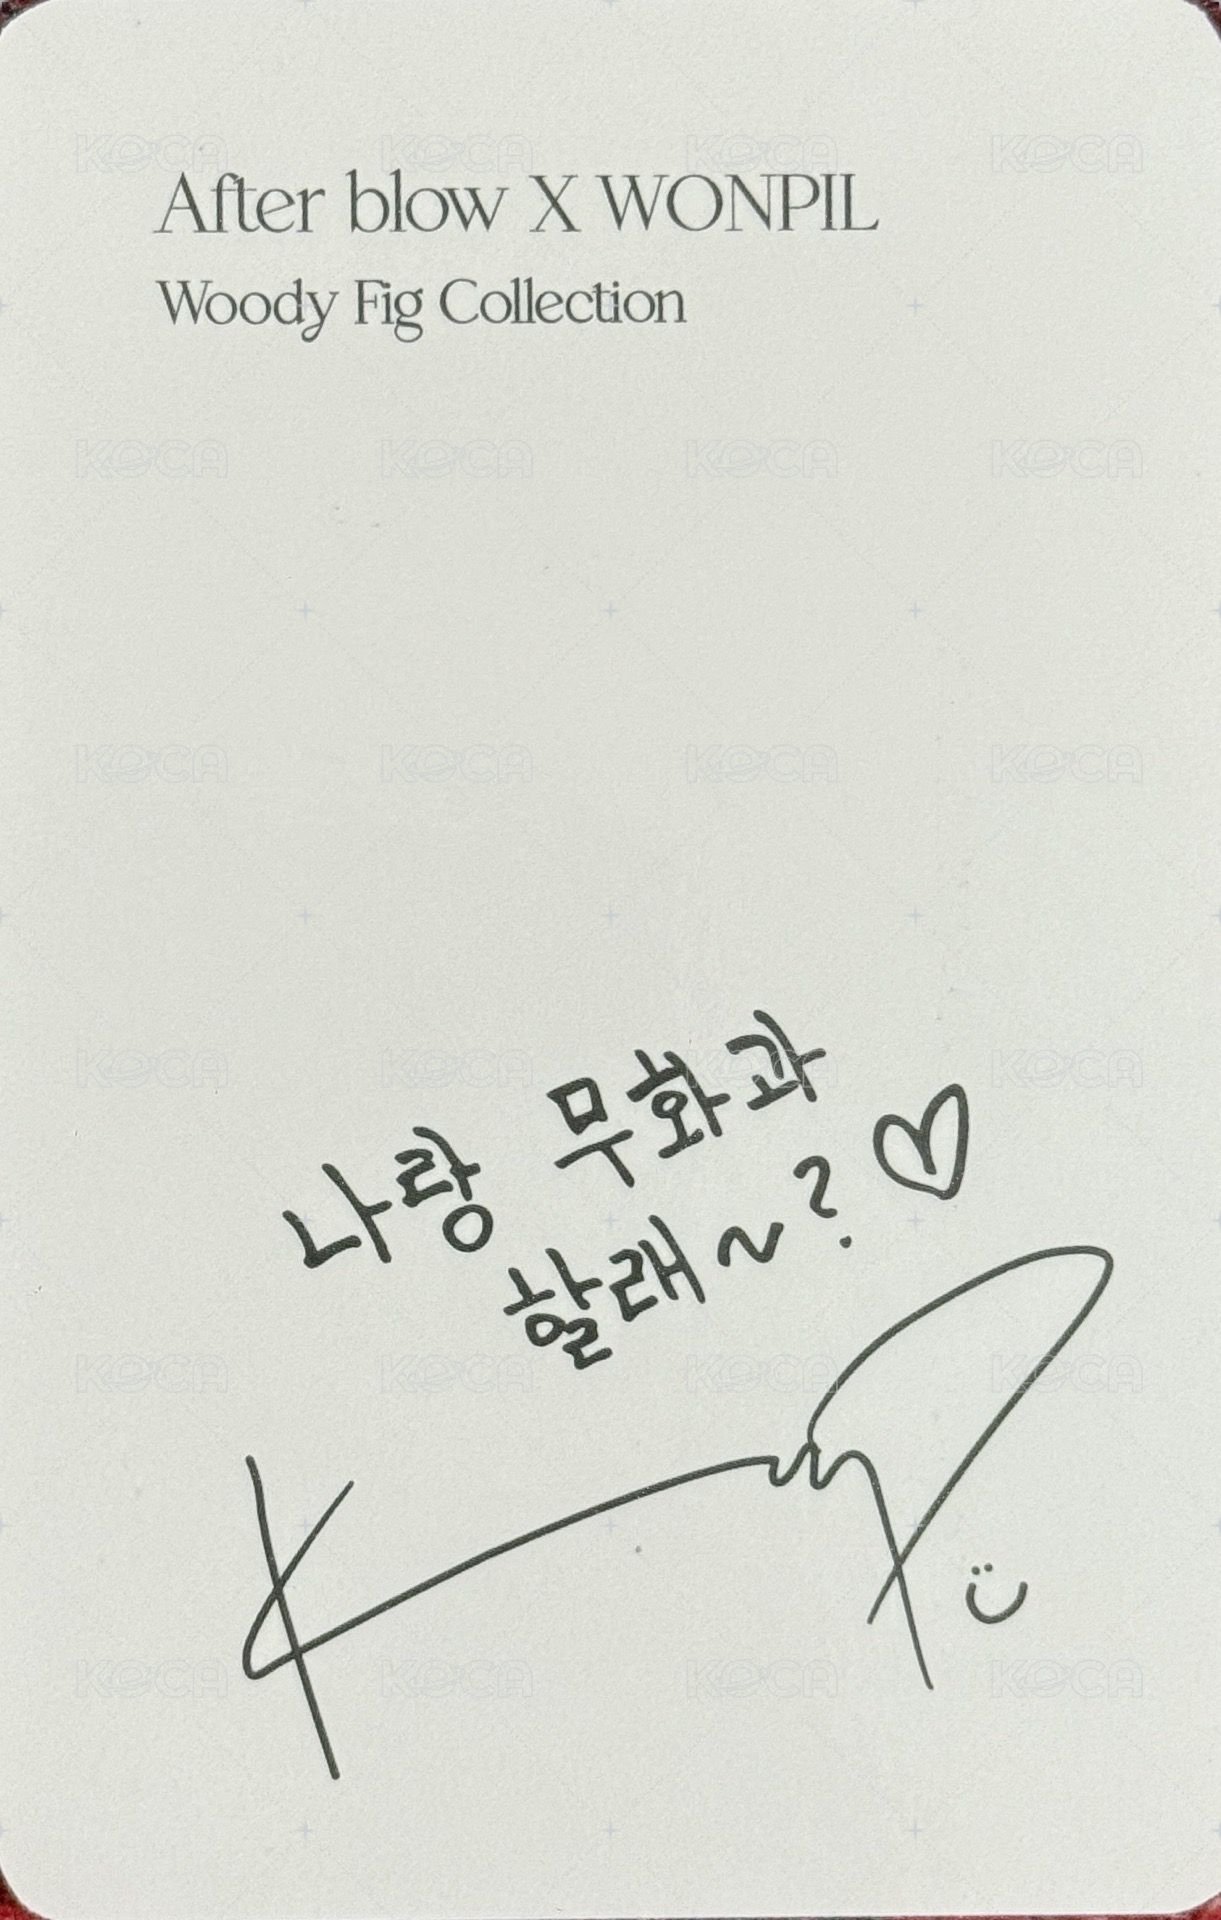 After blow X WONPIL
Woody Fig Collection
나랑 무화과
할래~? ♡
KOCA